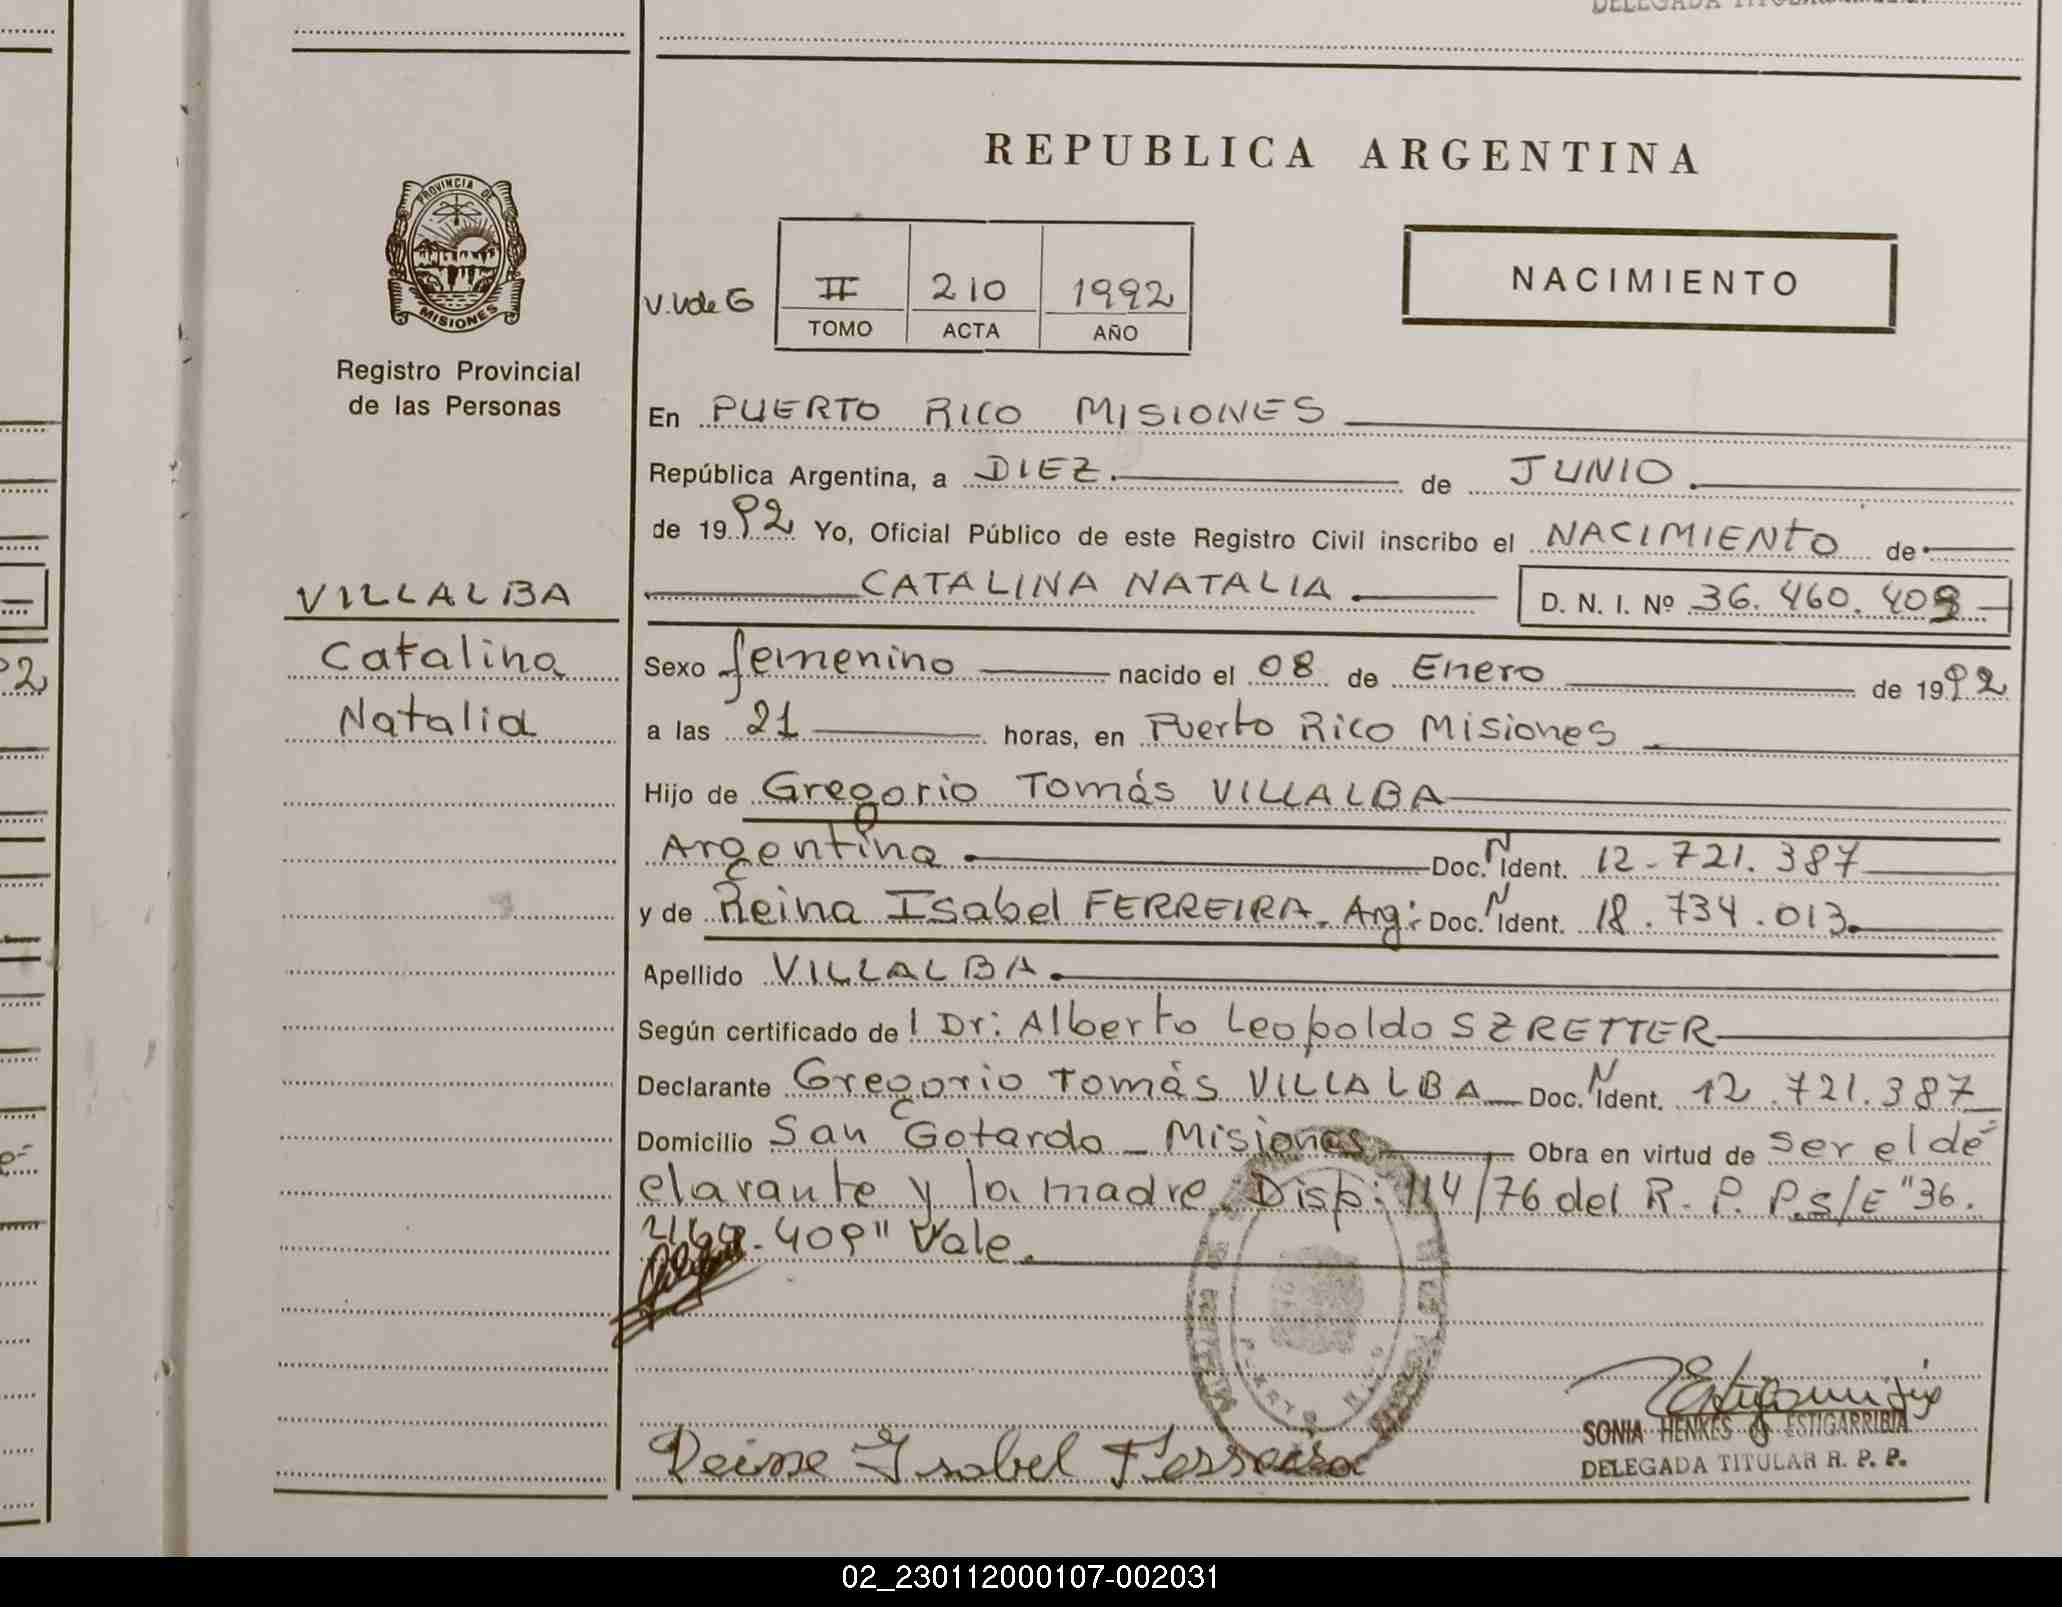 REPUBLICA ARGENTINA
PROVINCIA DE
MISIONES
Registro Provincial
de las Personas
V.V de G
II 210 1992
TOMO ACTA AÑO
NACIMIENTO
En PUERTO RICO MISIONES
República Argentina, a DIEZ de JUNIO
de 1992 Yo, Oficial Público de este Registro Civil inscribo el NACIMIENTO de
CATALINA NATALIA D. N. I. Nº 36.460.409
VILLALBA
Catalina
Natalia
Sexo femenino nacido el 08 de Enero de 1992
a las 21 horas, en Puerto Rico Misiones
Hijo de Gregorio Tomás VILLALBA
Argentino Doc. N Ident. 12-721.387
y de Reina Isabel FERREIRA - Arg: Doc. N Ident. 18.734.013
Apellido VILLALBA
Según certificado de l Dr: Alberto Leopoldo SZRETTER
Declarante Gregorio Tomás VILLALBA Doc. N Ident. 12.721.387
Domicilio San Gotardo - Misiones Obra en virtud de ser el de=
clarante y la madre. Disp: 114/76 del R. P. P. s/E "36.
460.409" Vale.
Reina Isabel Ferreira
SONIA HENKES ESTIGARRIBIA
DELEGADA TITULAR R. P. P.
02_230112000107-002031